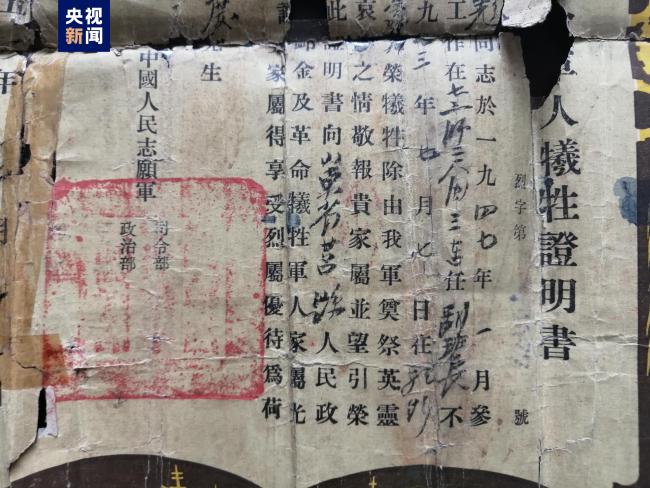 央视
新闻
人犧牲證明書
烈字第
號
同志於一九四七年一月參
工作在七三師三八团三連任副班長不
九三年七月七日在
榮犧牲除由我軍奠祭英靈
哀之情敬報貴家屬並望引榮
此證明書向山東省莒縣人民政
金及革命犧牲軍人家屬光
家屬得享受烈屬優待為荷
生
中國人民志願軍
司令部
政治部
年
月